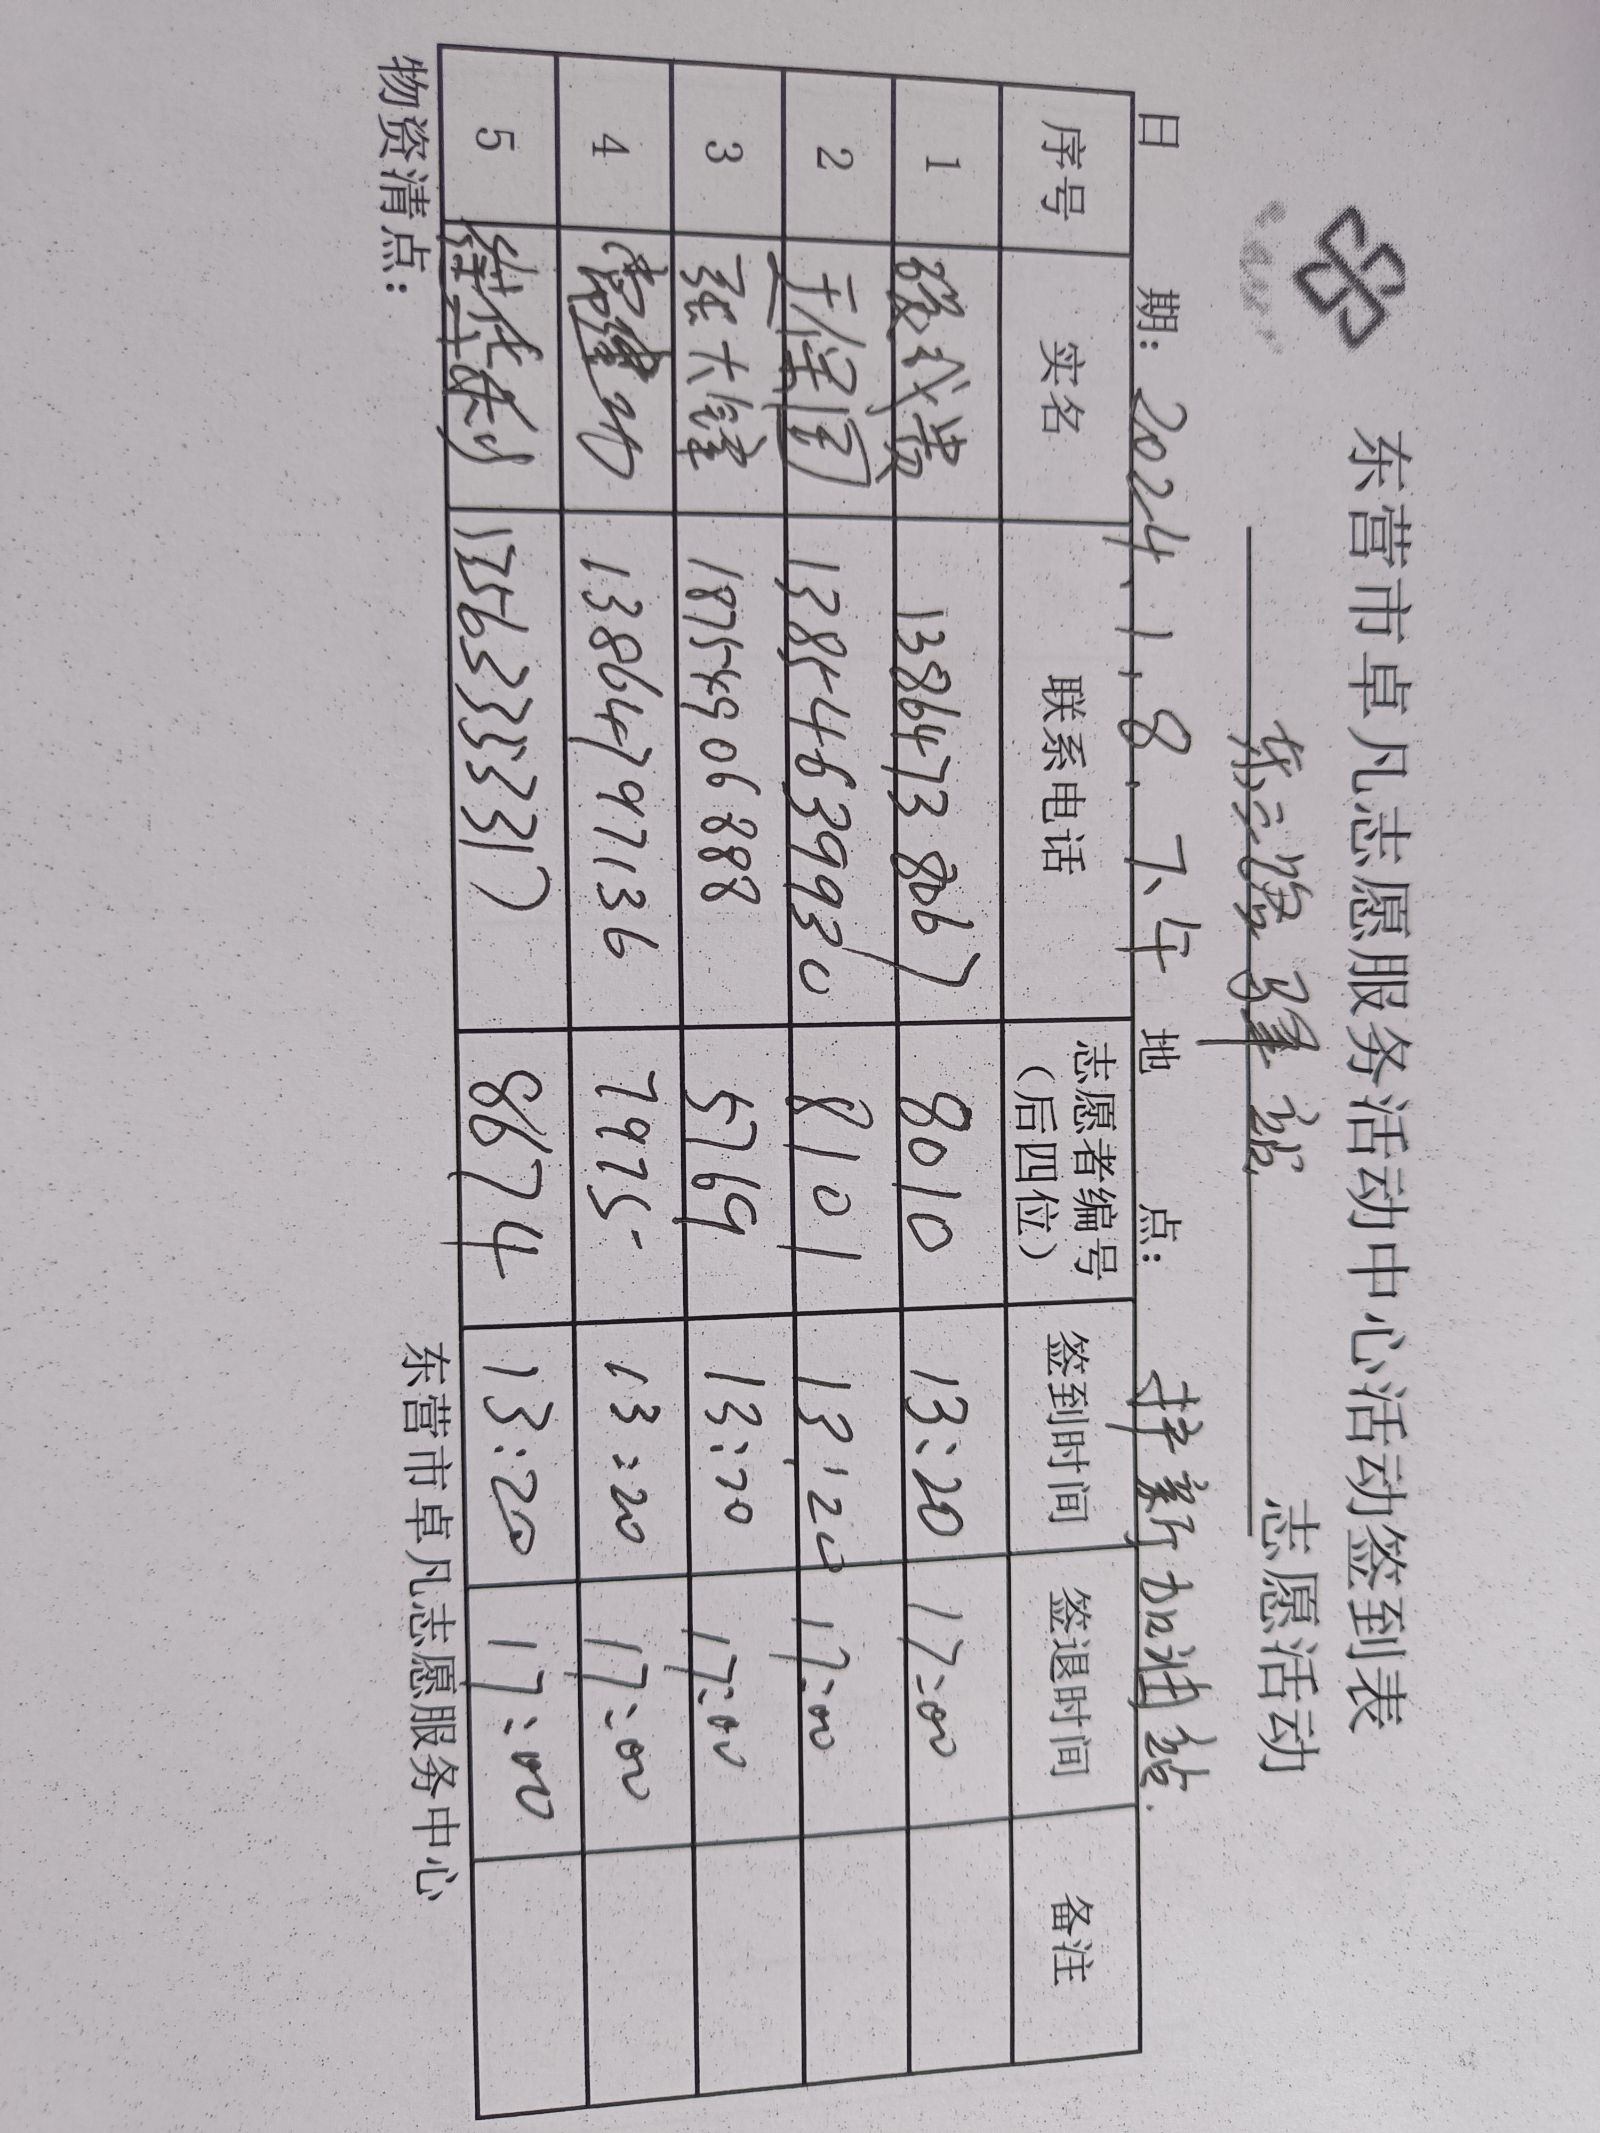 东营市卓凡志愿服务活动中心活动签到表
东三路 驿站 志愿活动
日 期: 2024.1.8.下午 地 点: 新加油站.
序号 实名 联系电话 志愿者编号(后四位) 签到时间 签退时间 备注
1 13864738067 8010 13:20 17:00
2 王保国 13854639930 8101 13:20 17:00
3 张大锋 18754906888 5769 13:20 17:00
4 13864797136 7975 13:20 17:00
5 13563355317 8674 13:20 17:00
物资清点:
东营市卓凡志愿服务中心